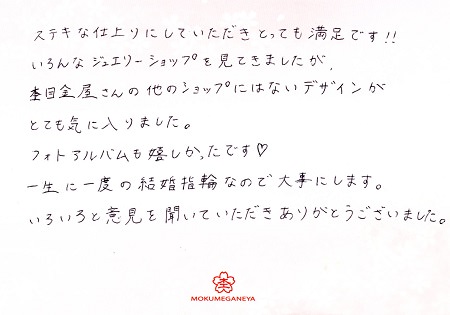 ステキな仕上りにしていただきとっても満足です!!
いろんなジュエリーショップを見てきましたが、
杢目金屋さんの他のショップにはないデザインが
とても気に入りました。
フォトアルバムも嬉しかったです♡
一生に一度の結婚指輪なので大事にします。
いろいろと意見を聞いていただきありがとうございました。
杢
MOKUMEGANEYA